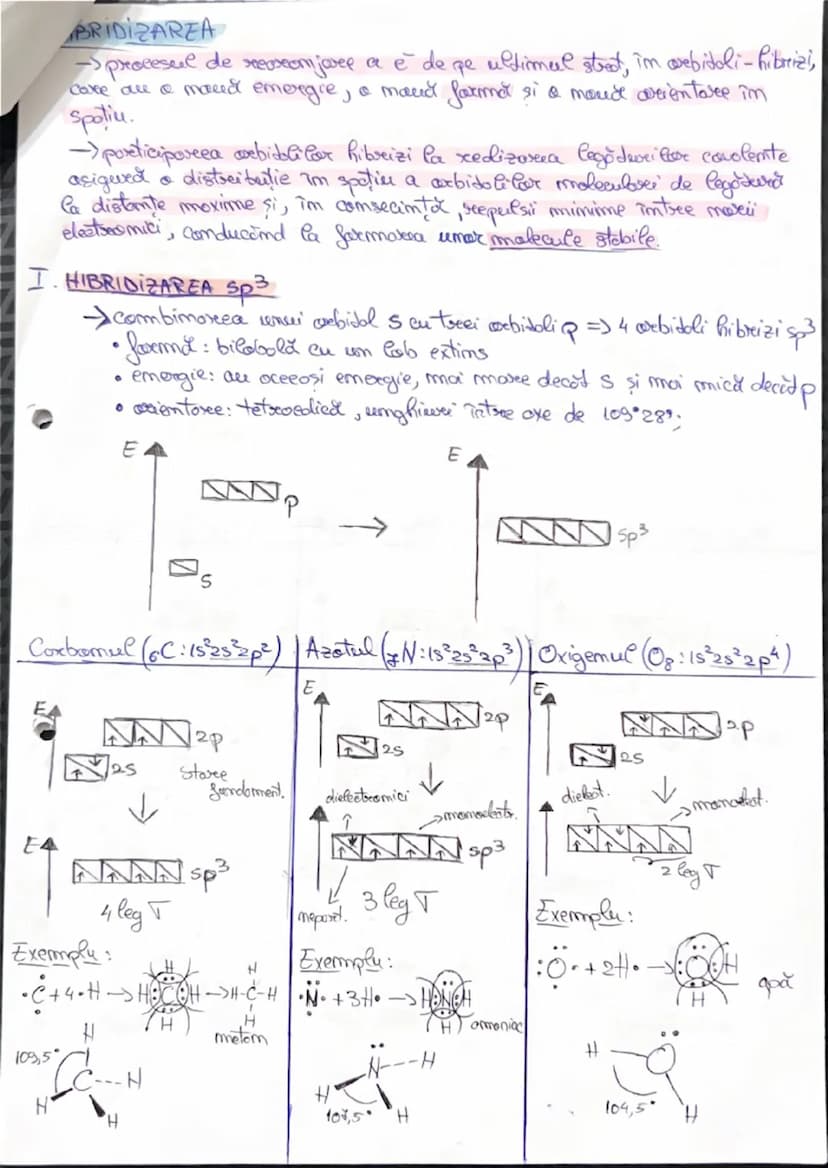 BRIDIZAREA
→procesul de rearanjare a e⁻ de pe ultimul strat, în orbitali-hibrizi,
care au o nouă energie, o nouă formă și o nouă orientare în
spațiu.
→participarea orbitalilor hibrizi la realizarea legăturilor covalente
asigură o distribuție în spațiu a orbitalilor moleculari de legătură
la distanțe maxime și, în consecință, repulsii minime între norii
electronici, conducând la formarea unor molecule stabile.
I. HIBRIDIZAREA sp³
→combinarea unui orbital s cu trei orbitali p => 4 orbitali hibrizi sp³
• formă: bilobală cu un lob extins
• energie: au aceeași energie, mai mare decât s și mai mică decât p
• orientare: tetraedică, unghiuri între axe de 109°28';
E E
p → sp³
s
Carbonul (₆C: 1s²2s²2p²) | Azotul (₇N: 1s²2s²2p³) | Oxigenul (O₈: 1s²2s²2p⁴)
E E E
2p 2p 2p
2s 2s 2s
stare
fundament.
dielectronici dielect.
monoelectr. monoelect.
E
sp³ sp³
4 leg σ 3 leg σ 2 leg σ
nepart.
Exemplu: Exemplu: Exemplu:
·C· + 4·H → H:C:H → H-C-H
H H
H H
metan
·N· + 3H· → H:N:H
H
amoniac
:O· + 2H· → :O:H
H
apă
H
109,5°
C---H
H H
N---H
H H
107,5°
H O
104,5°
H